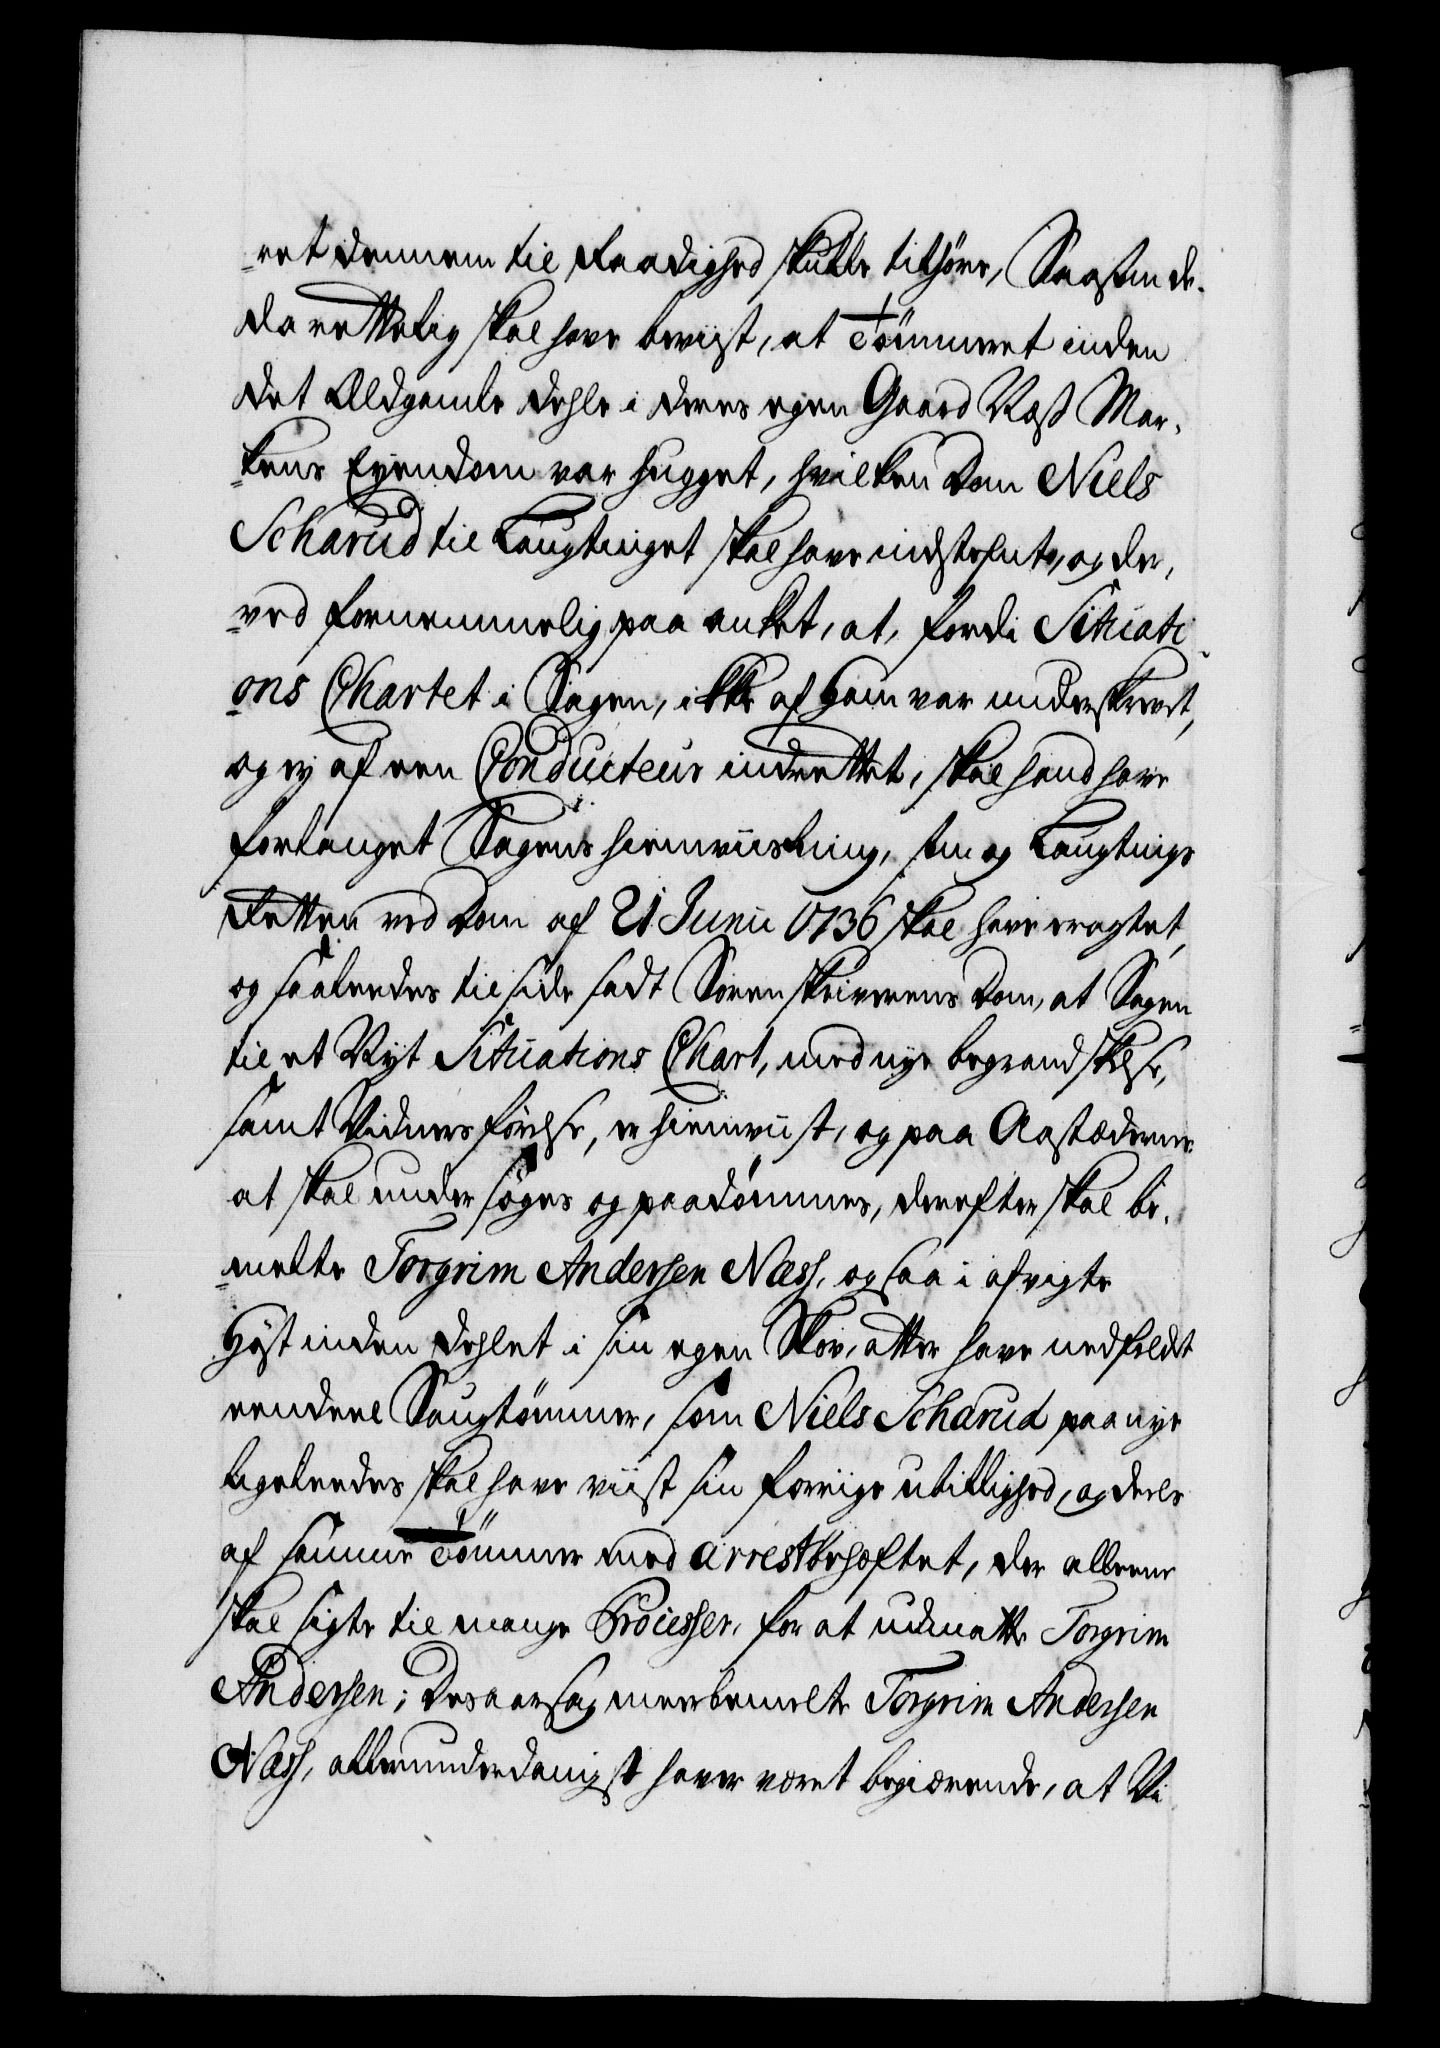 =ret dennem til Raadighed skulle tilhøre, Saasom de.
da rettelig skal have beviist, at Tømmeret inden
det Ældgamle Dehle i deres egen Gaard Næss Mar.
=kens Eyendom var hugget, hvilken Dom Niels
Scharud til Laugtinget skal have indstefnte, og der,
=ved fornemmelig paa anket, at, fordi Situati
=ons Chartet i Sagen, ikke af ham var underskrevet,
og ej af een Conducteur indrettet, skal hand have
forlanget Sagens hiemviisning, som og Laugtings
Retten ved Dom af 21 Junii 1736 skal have eragtet,
og saaledes til side sadt Sorenskriverens Dom, at Sagen
til et Nyt Situations Chart, med nye begrandskelse,
samt Vidners førelse, er hiemviist, og paa Aastæderne
at skal undersøges og paadømmes, derefter skal be.
=melte Torgrim Andersen Næss, og saa i afvigte
Høst inden Dehlet i sin egen Skov, atter have nedfeldt
eendeel Saugtømmer, som Niels Scharud paa nye
ligeledes skal have viist sin forrige ubillighed, og deels
af samme Tømmer med arrest behæftet, der alleene
skal sigte til mange Processer, for at udmatte Torgrim
Andersen; Desaarsag meerbemelte Torgrim Andersen
Næss, allerunderdanigst haver været begiærende, at Vi